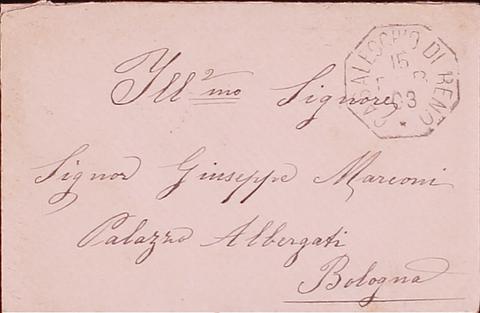 Ill.mo Signore
Signor Giuseppe Marconi
Palazzo Albergati
Bologna
CASALECCHIO DI RENO
15